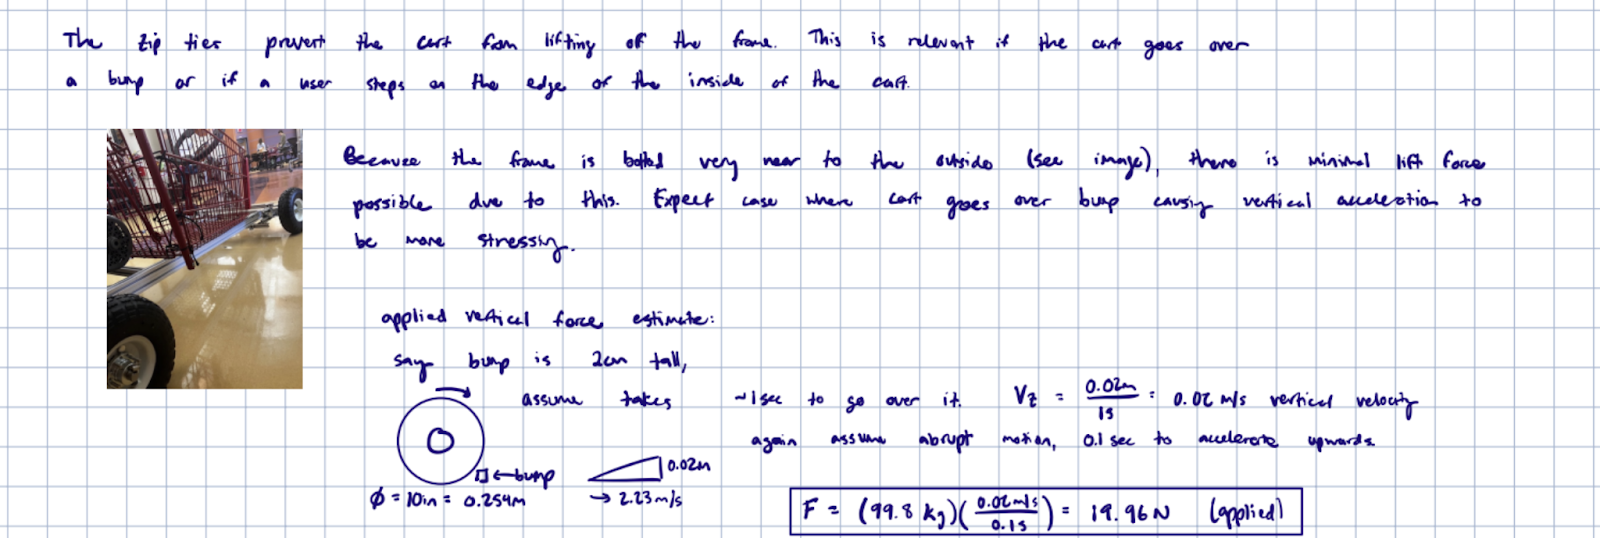 The zip ties prevent the cart from lifting off the frame. This is relevant if the cart goes over
a bump or if a user steps on the edge of the inside of the cart.
Because the frame is bolted very near to the outside (see image), there is minimal lift force
possible due to this. Expect case where cart goes over bump causing vertical acceleration to
be more stressing.
applied vertical force estimate:
say bump is 2cm tall,
assume takes ~1sec to go over it. Vz = 0.02m/1s = 0.02 m/s vertical velocity
again assume abrupt motion, 0.1 sec to accelerate upwards
←bump
0.02m
ϕ = 10in = 0.254m
→ 2.23m/s
F = (99.8 kg)(0.02m/s / 0.1s) = 19.96N (applied)